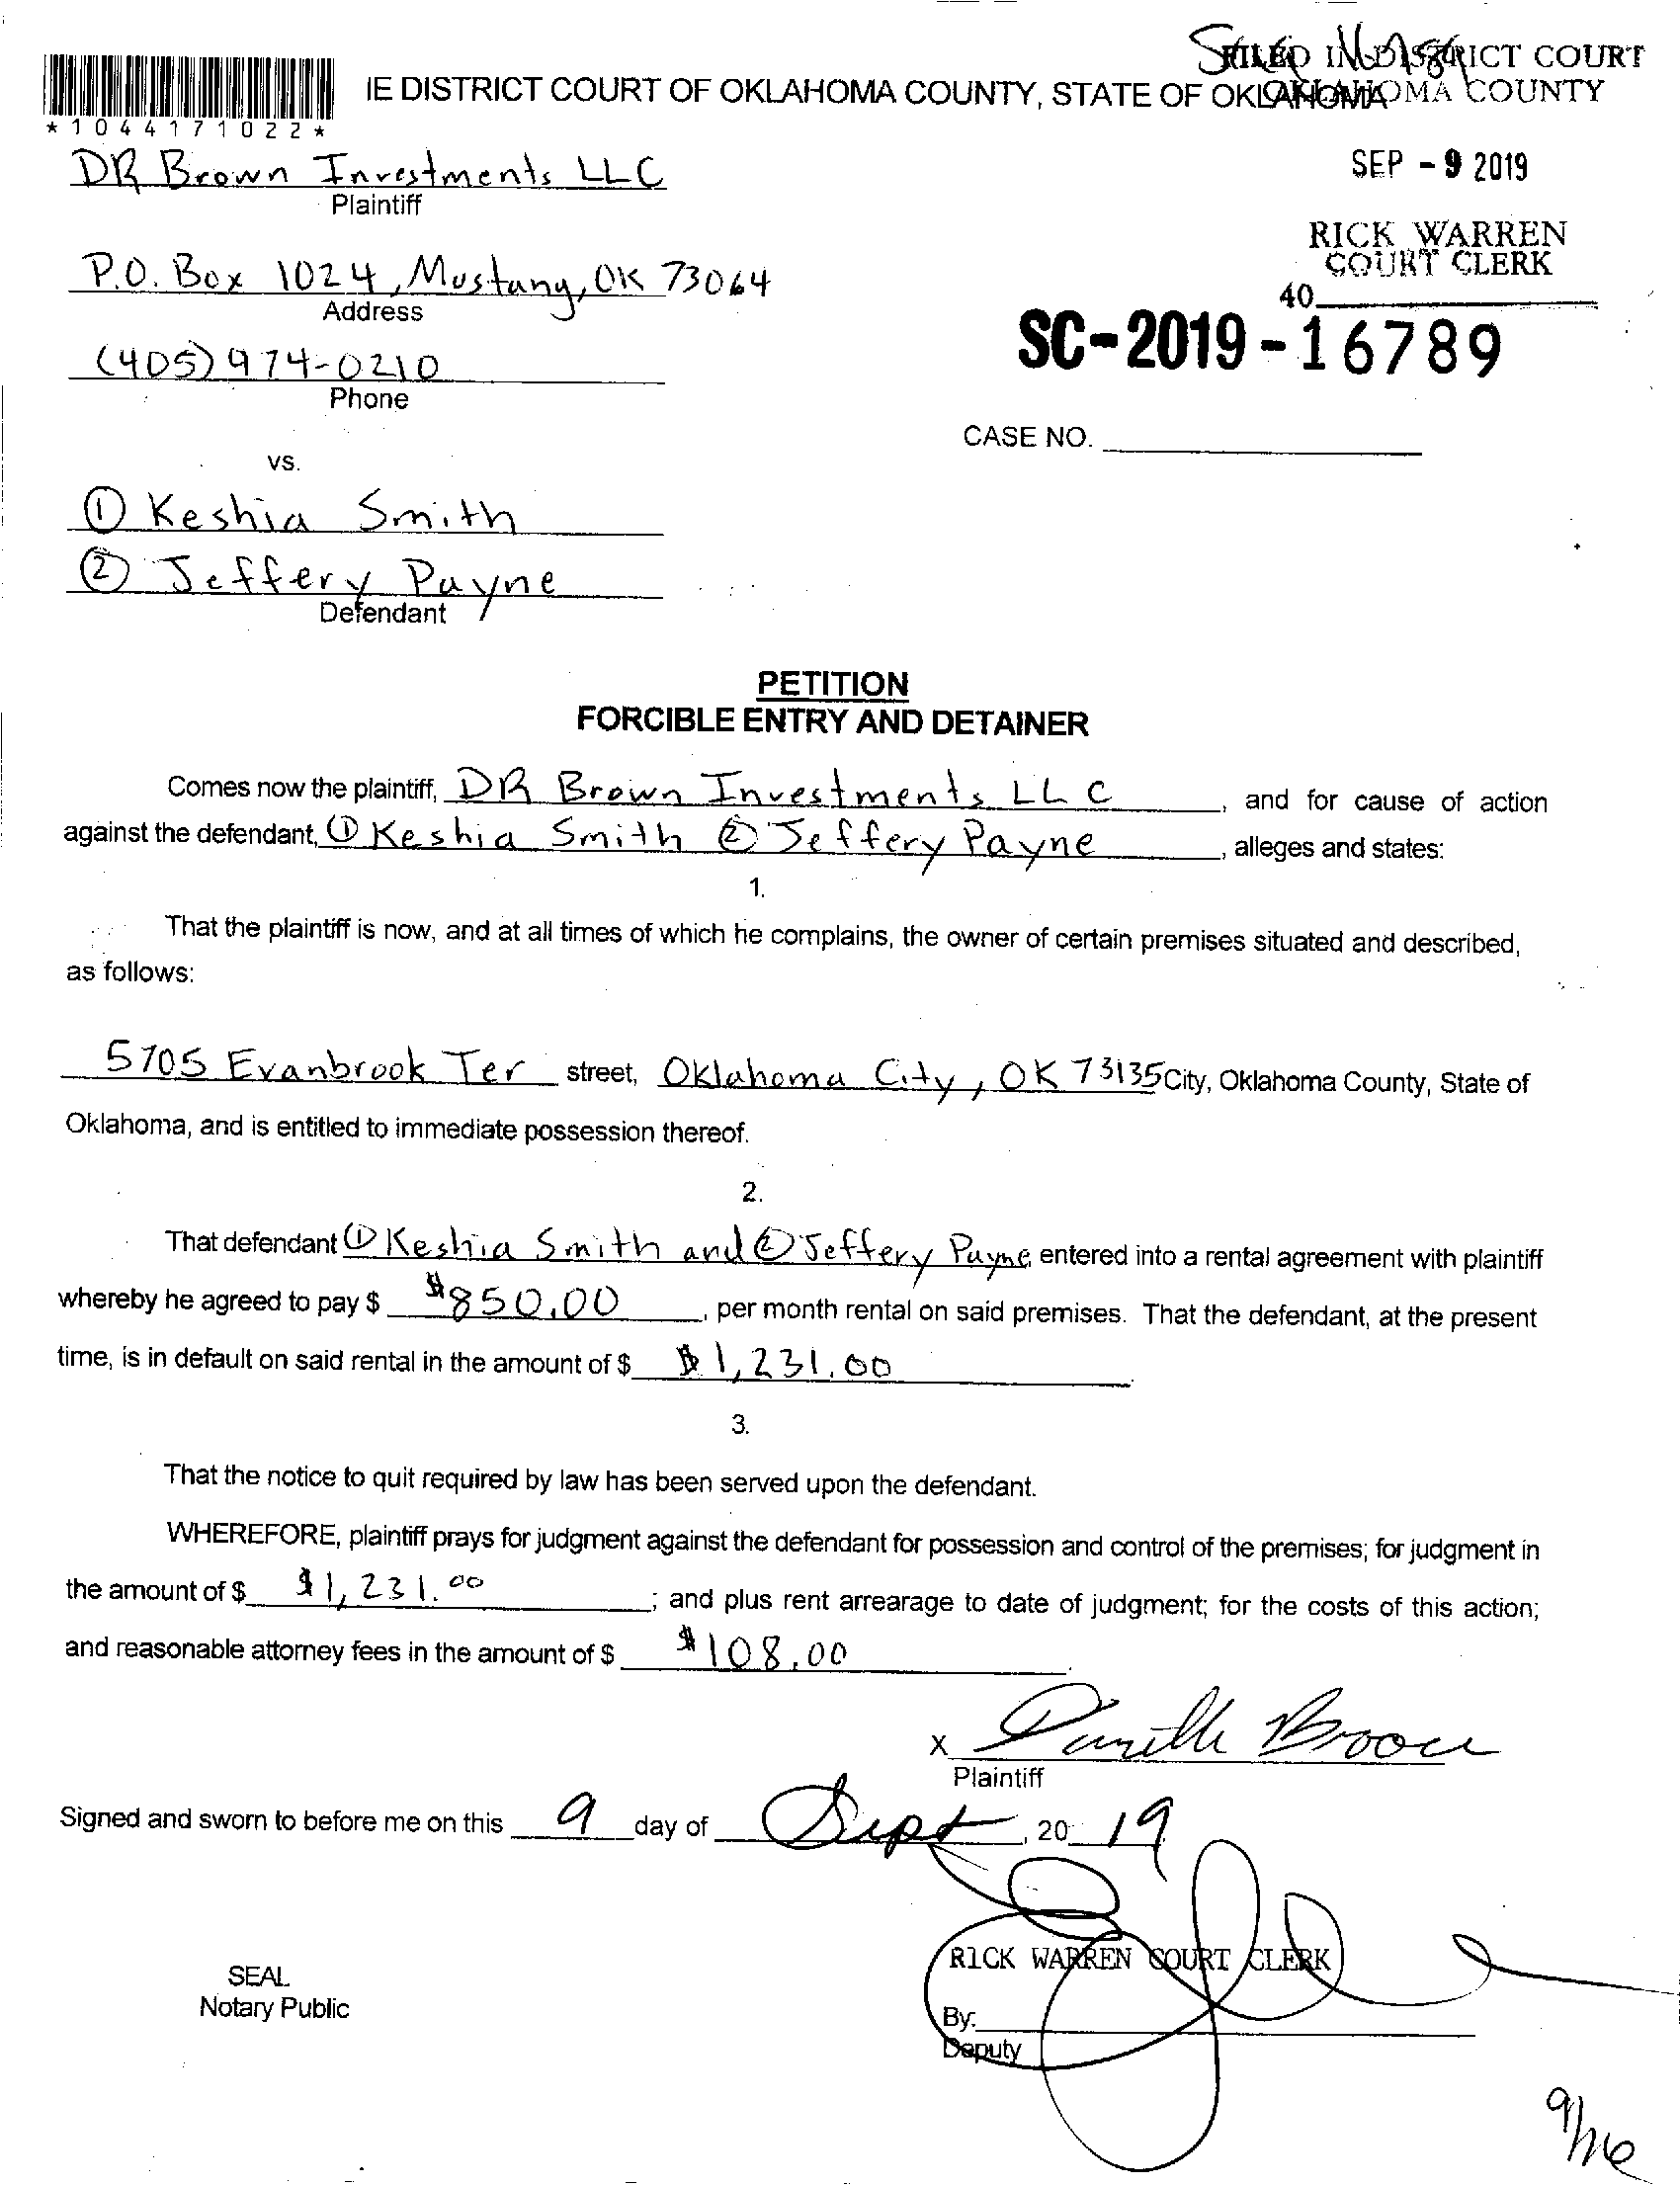 FILED IN DISTRICT COURT
IE DISTRICT COURT OF OKLAHOMA COUNTY, STATE OF OKLAHOMA
OKLAHOMA COUNTY
*1044171022*
DR Brown Investments LLC
Plaintiff
SEP - 9 2019
RICK WARREN
COURT CLERK
P.O. Box 1024, Mustang, OK 73064
Address
40
SC-2019-16789
(405) 974-0210
Phone
CASE NO.
vs.
① Keshia Smith
② Jeffery Payne
Defendant
PETITION
FORCIBLE ENTRY AND DETAINER
Comes now the plaintiff, DR Brown Investments LLC, and for cause of action
against the defendant, ① Keshia Smith ② Jeffery Payne, alleges and states:
1.
That the plaintiff is now, and at all times of which he complains, the owner of certain premises situated and described,
as follows:
5705 Evanbrook Ter street, Oklahoma City, OK 73135 City, Oklahoma County, State of
Oklahoma, and is entitled to immediate possession thereof.
2.
That defendant ① Keshia Smith and ② Jeffery Payne entered into a rental agreement with plaintiff
whereby he agreed to pay $ $850.00, per month rental on said premises. That the defendant, at the present
time, is in default on said rental in the amount of $ $1,231.00.
3.
That the notice to quit required by law has been served upon the defendant.
WHEREFORE, plaintiff prays for judgment against the defendant for possession and control of the premises; for judgment in
the amount of $ $1,231.00; and plus rent arrearage to date of judgment; for the costs of this action;
and reasonable attorney fees in the amount of $ $108.00.
X
Plaintiff
Signed and sworn to before me on this 9 day of Sept, 20 19
RICK WARREN COURT CLERK
SEAL
Notary Public
By:
Deputy